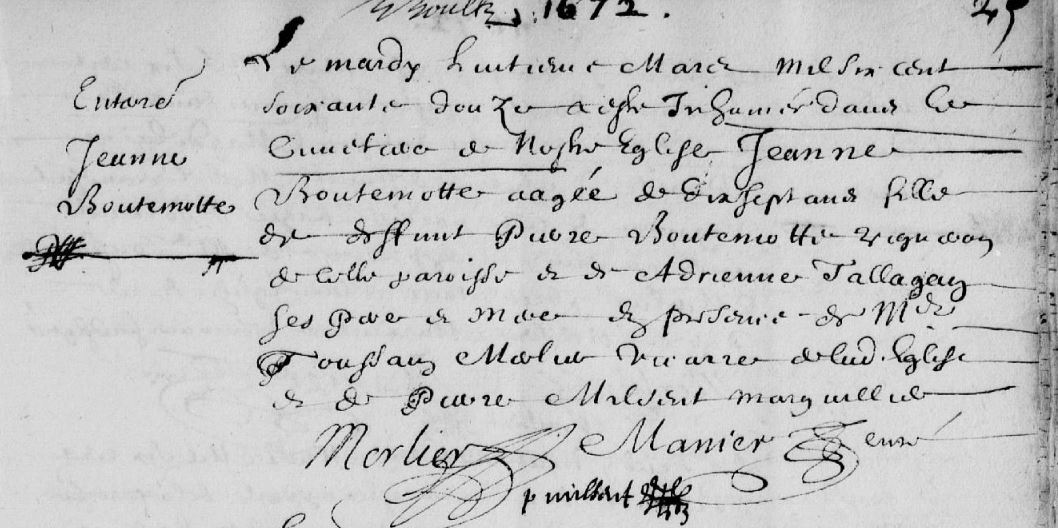 1672.
25
Enterré
Jeanne
Boutemotte
Le mardy huitieme Mars mil six cent
soixante douze a esté Inhumée dans le
Cimetiere de Nostre Eglise Jeanne
Boutemotte aagée de dix sept ans fille
de deffunt Pierre Boutemotte vigneron
de celle paroisse et de Adrienne
ses Pere et Mere En presence de Mre
Toussain Merlier vicaire de lad. Eglise
et de Pierre Milsent marguillier
Merlier Manier curé
p milsent